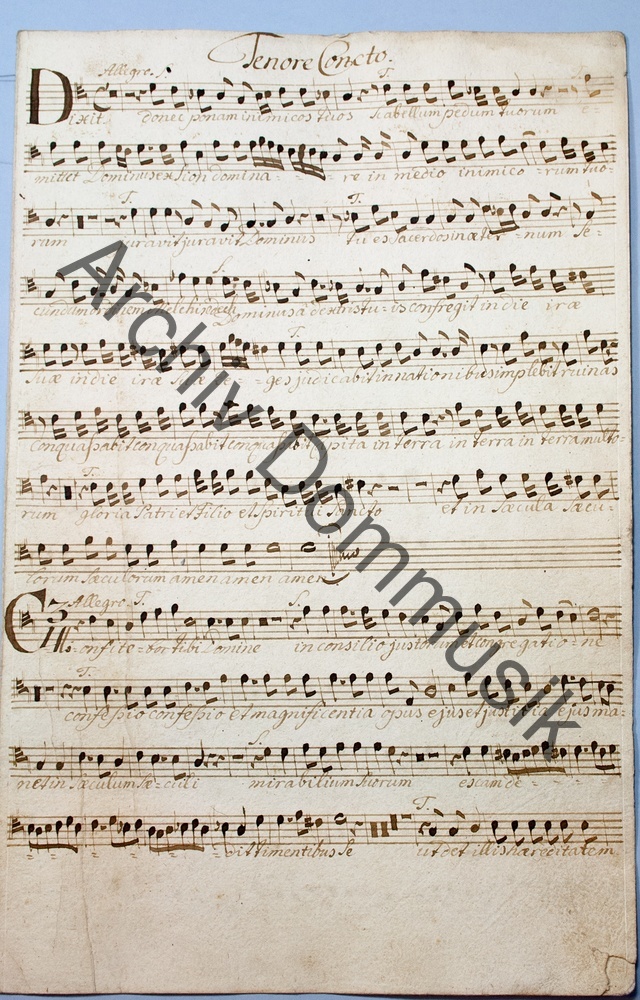 Tenore Concto.
Allegro. S. T.
Dixit donec ponam inimicos tuos scabellum pedum tuorum e-
mittet Dominus ex Sion domina- - - - re in medio inimico - rum tuo-
T. T.
rum juravit juravit Dominus tu es Sacerdos in æter- - num se-
S.
cundum ordinem Melchisedech Dominus a dextris tu - is confregit in die iræ
T.
suæ in die iræ suæ re- - ges judicabit in nationibus implebit ruinas
conquaßabit conquaßabit conquaßabit capita in terra in terra in terra multo-
T.
rum gloria Patri et Filio et Spiritui Sancto et in Sæcula Sæcu-
lorum Sæculorum amen amen amen
Allegro. T. S.
Confite - bor tibi Domine in consilio justorum et congregatio - ne
T.
confeßio confeßio et magnificentia opus ejus et justitia ejus ma-
S.
net in Sæculum Sæ - culi mirabilium Suorum escam de- - -
T.
- - - - - - dit timentibus Se ut det illis hæreditatem
Archiv Dommusik